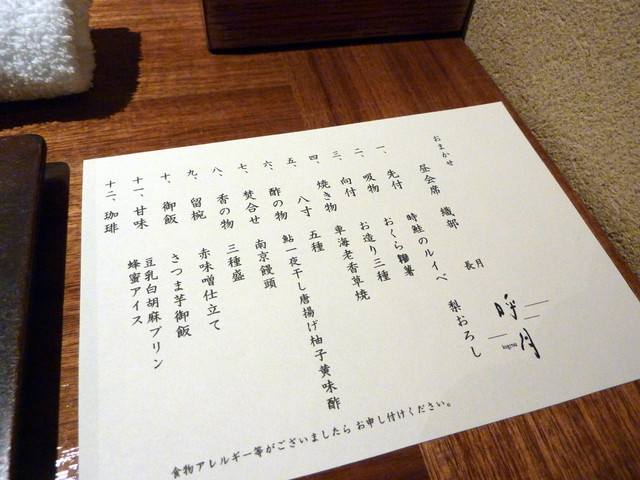 おまかせ
昼会席 織部 長月
一、 先付 時鮭のルイベ 梨おろし
二、 吸物 おくら 薯
三、 向付 お造り三種
四、 焼き物 車海老香草焼
五、 八寸 五種
六、 酢の物 鮎一夜干し唐揚げ柚子黄味酢
七、 焚合せ 南京饅頭
八、 香の物 三種盛
九、 留椀 赤味噌仕立て
十、 御飯 さつま芋御飯
十一、 甘味 豆乳白胡麻プリン
蜂蜜アイス
十二、 珈琲
食物アレルギー等がございましたら お申し付けください。